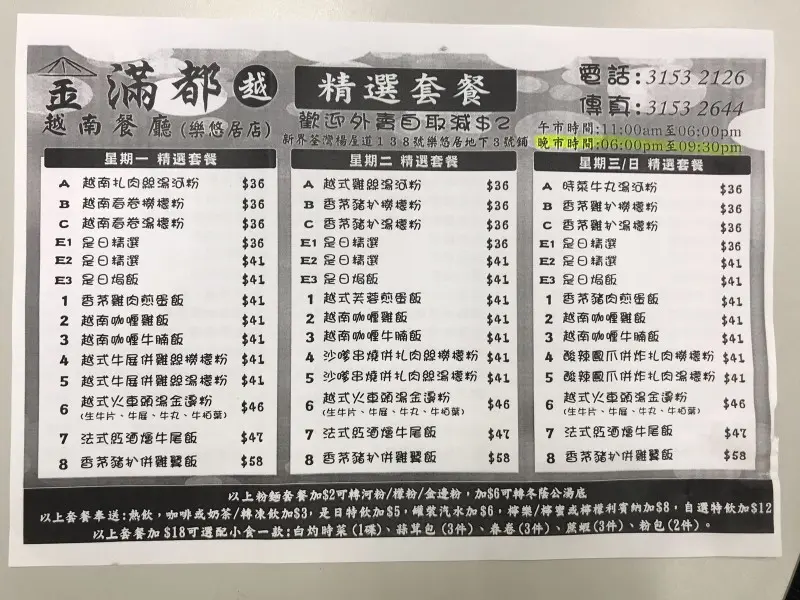 金滿都 越
越南餐廳(樂悠居店)
精選套餐
歡迎外賣自取減$2
新界荃灣楊屋道138號樂悠居地下3號鋪
電話:3153 2126
傳真:3153 2644
午市時間:11:00am至06:00pm
晚市時間:06:00pm至09:30pm
星期一 精選套餐
A 越南扎肉絲湯河粉 $36
B 越南春卷撈檬粉 $36
C 越南春卷湯檬粉 $36
E1 是日精選 $36
E2 是日精選 $41
E3 是日焗飯 $41
1 香茅雞肉煎蛋飯 $41
2 越南咖喱雞飯 $41
3 越南咖喱牛腩飯 $41
4 越式牛展併雞絲撈檬粉 $41
5 越式牛展併雞絲湯檬粉 $41
6 越式火車頭湯金邊粉 $46
(生牛片、牛展、牛丸、牛栢葉)
7 法式紅酒燴牛尾飯 $47
8 香茅豬扒併雞翼飯 $58
星期二 精選套餐
A 越式雞絲湯河粉 $36
B 香茅豬扒撈檬粉 $36
C 香茅豬扒湯檬粉 $36
E1 是日精選 $36
E2 是日精選 $41
E3 是日焗飯 $41
1 越式芙蓉煎蛋飯 $41
2 越南咖喱雞飯 $41
3 越南咖喱牛腩飯 $41
4 沙嗲串燒併扎肉絲撈檬粉 $41
5 沙嗲串燒併扎肉絲湯檬粉 $41
6 越式火車頭湯金邊粉 $46
(生牛片、牛展、牛丸、牛栢葉)
7 法式紅酒燴牛尾飯 $47
8 香茅豬扒併雞翼飯 $58
星期三/日 精選套餐
A 時菜牛丸湯河粉 $36
B 香茅雞扒撈檬粉 $36
C 香茅雞扒湯檬粉 $36
E1 是日精選 $36
E2 是日精選 $41
E3 是日焗飯 $41
1 香茅豬肉煎蛋飯 $41
2 越南咖喱雞飯 $41
3 越南咖喱牛腩飯 $41
4 酸辣鳳爪併炸扎肉撈檬粉 $41
5 酸辣鳳爪併炸扎肉湯檬粉 $41
6 越式火車頭湯金邊粉 $46
(生牛片、牛展、牛丸、牛栢葉)
7 法式紅酒燴牛尾飯 $47
8 香茅豬扒併雞翼飯 $58
以上粉麵套餐加$2可轉河粉/檬粉/金邊粉,加$6可轉冬蔭公湯底
以上套餐奉送:熱飲,咖啡或奶茶/轉凍飲加$3,是日特飲加$5,罐裝汽水加$6,檸樂/檸蜜或檸檬利賓納加$8,自選特飲加$12
以上套餐加$18可選配小食一款:白灼時菜(1碟)、蒜茸包(3件)、春卷(3件)、蔗蝦(3件)、粉包(2件)。